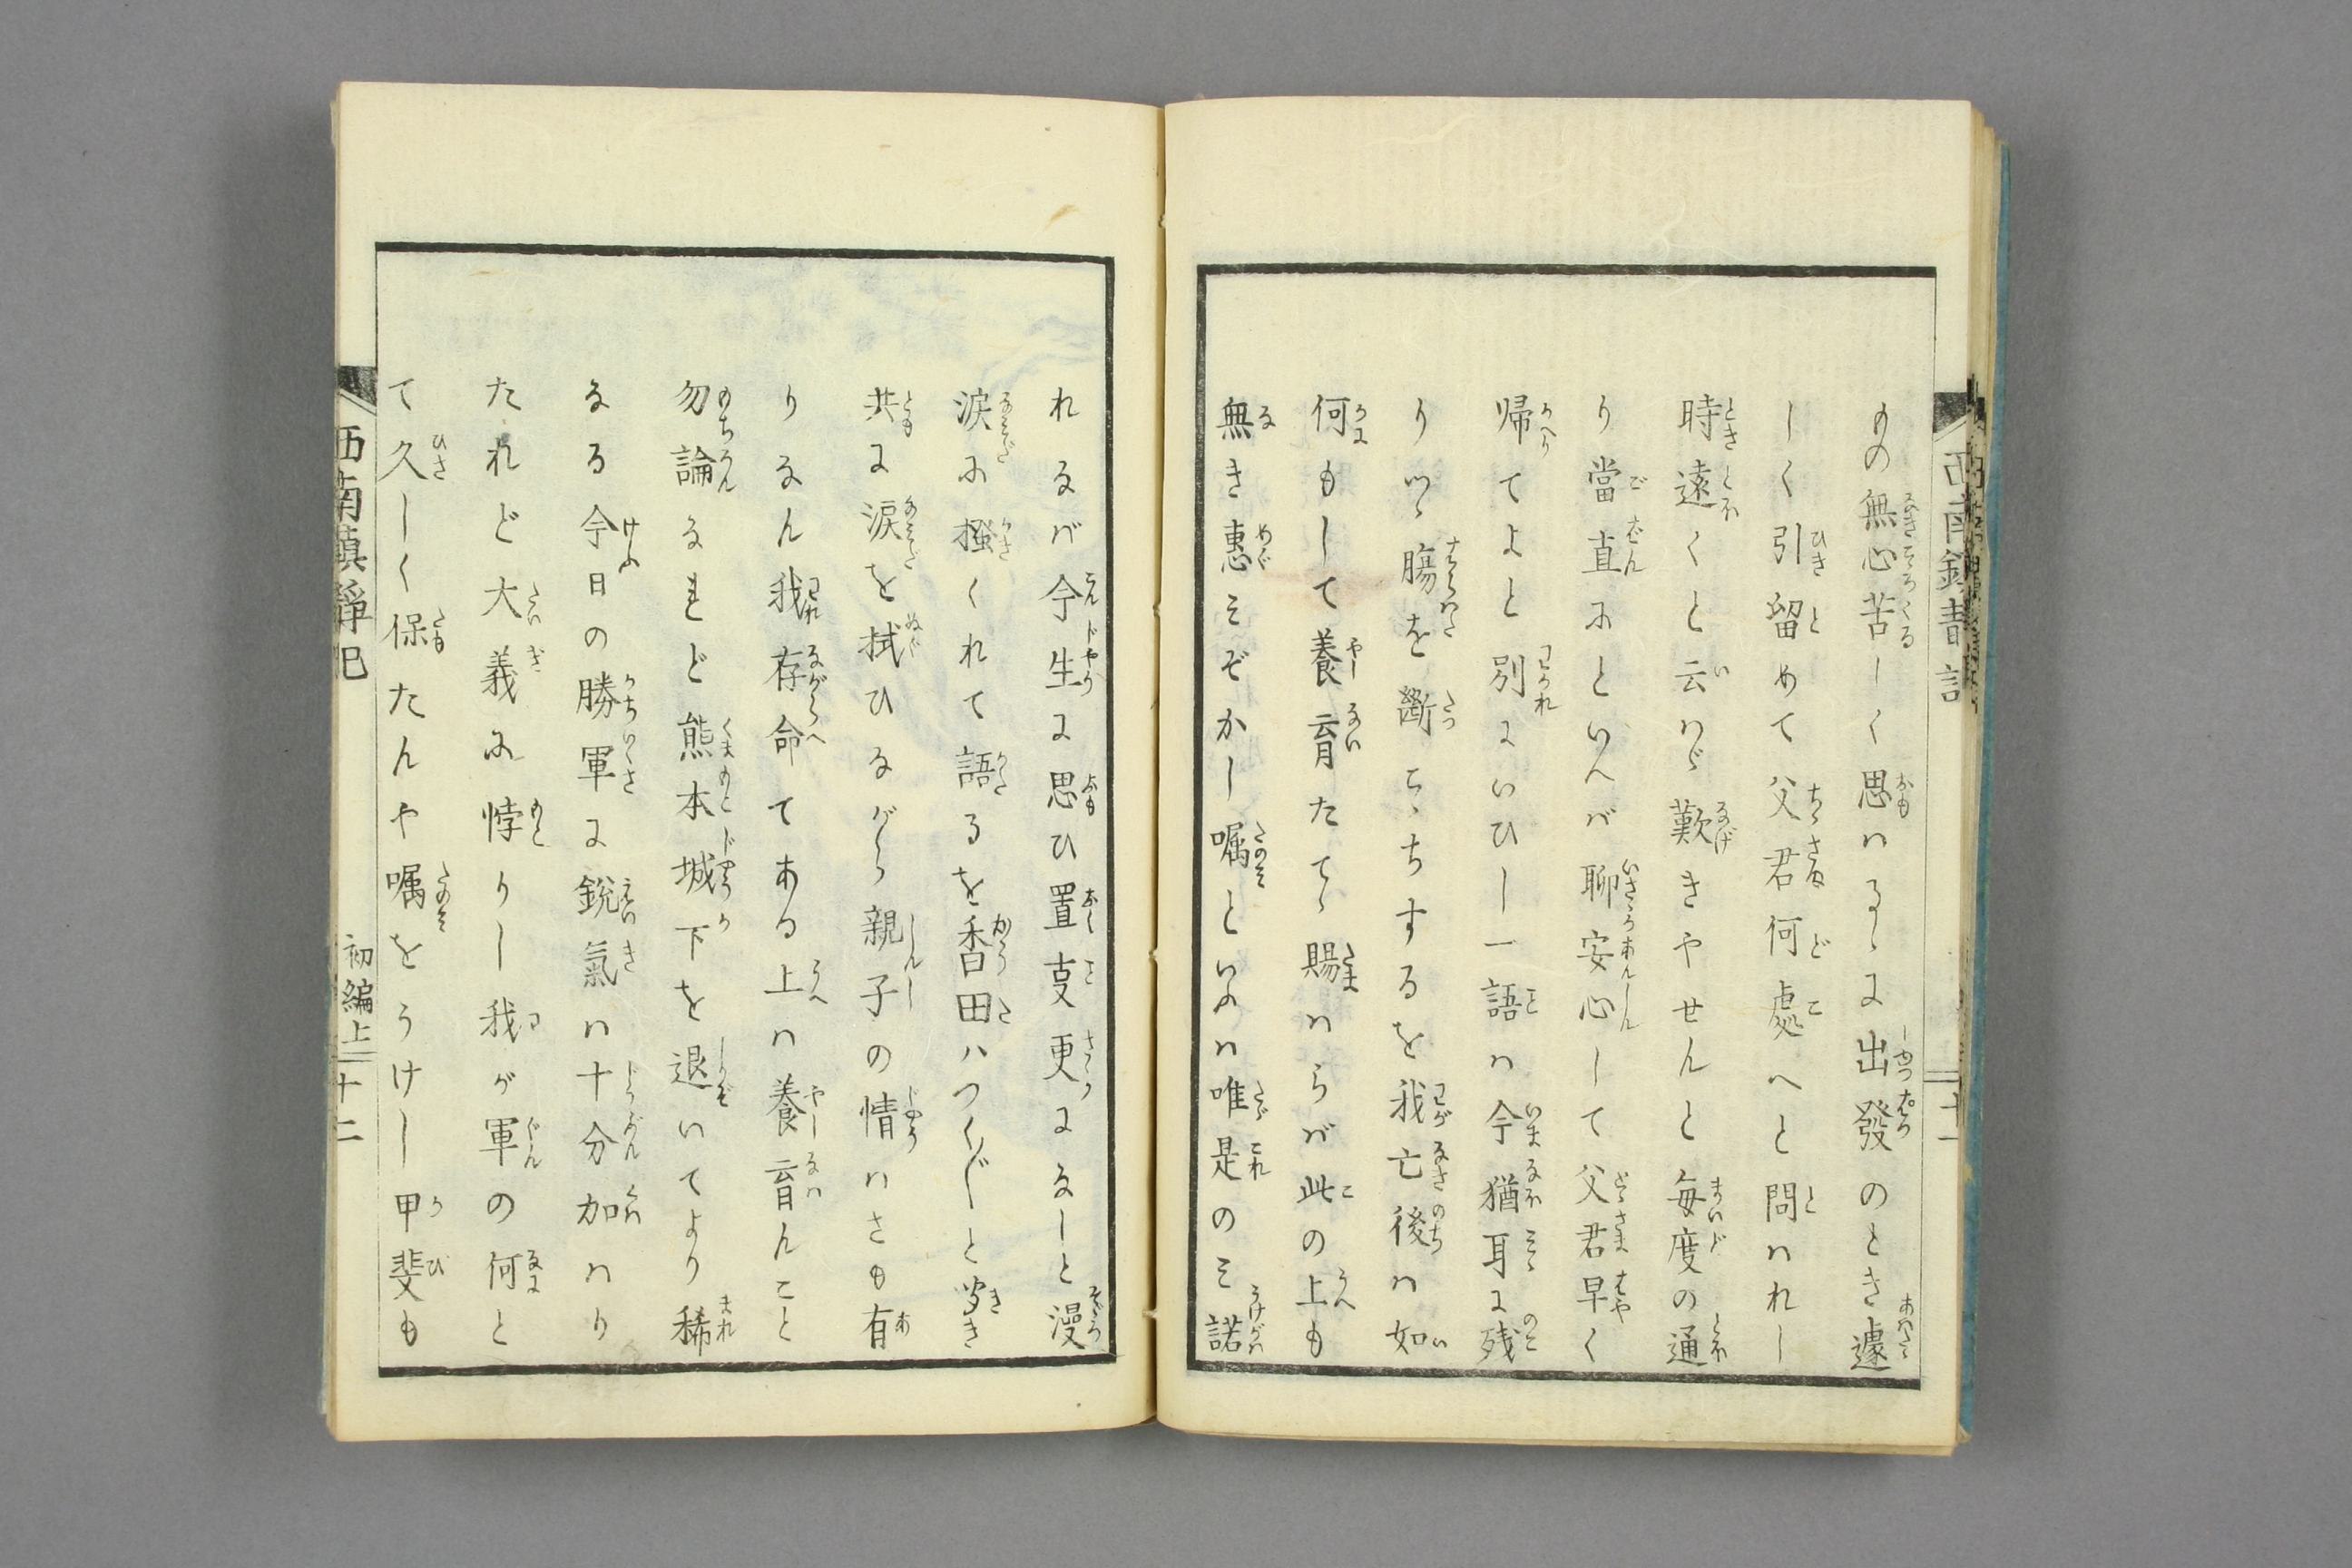 もの無心苦しく思ハるゝに出發のとき遽
しく引留めて父君何處へと問ハれし
時遠くと云ハゞ歎きやせんと毎度の通
り當直にといへバ聊安心して父君早く
帰てよと別にいひし一語ハ今猶耳に残
りツヽ膓を斷こゝちするを我亡後ハ如
何もして養育たてゝ賜ハらバ此の上も
無き惠ミぞかし嘱といふハ唯是のミ諾
れるバ今生に思ひ置支更になしと漫
涙に掻くれて語るを香田ハつく〲と聞き
共に涙を拭ひながら親子の情ハさも有
りなん我存命てある上ハ養育んこと
勿論なれど熊本城下を退いてより稀
なる今日の勝軍に鋭氣ハ十分加ハり
たれど大義に悖りし我が軍の何と
て久しく保たんや嘱をうけし甲斐も
西南鎮静記
初編上
十二